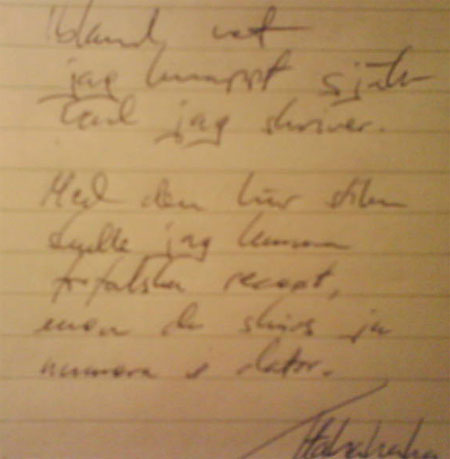 Ibland vet
jag knappt själv
vad jag skriver.
Med den här stilen
skulle jag kunna
förfalska recept,
men de skrivs ju
numera i dator.
Hahahaha